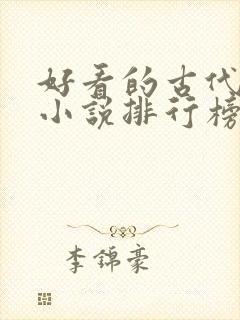 好看的古代
小说排行榜
李锦豪